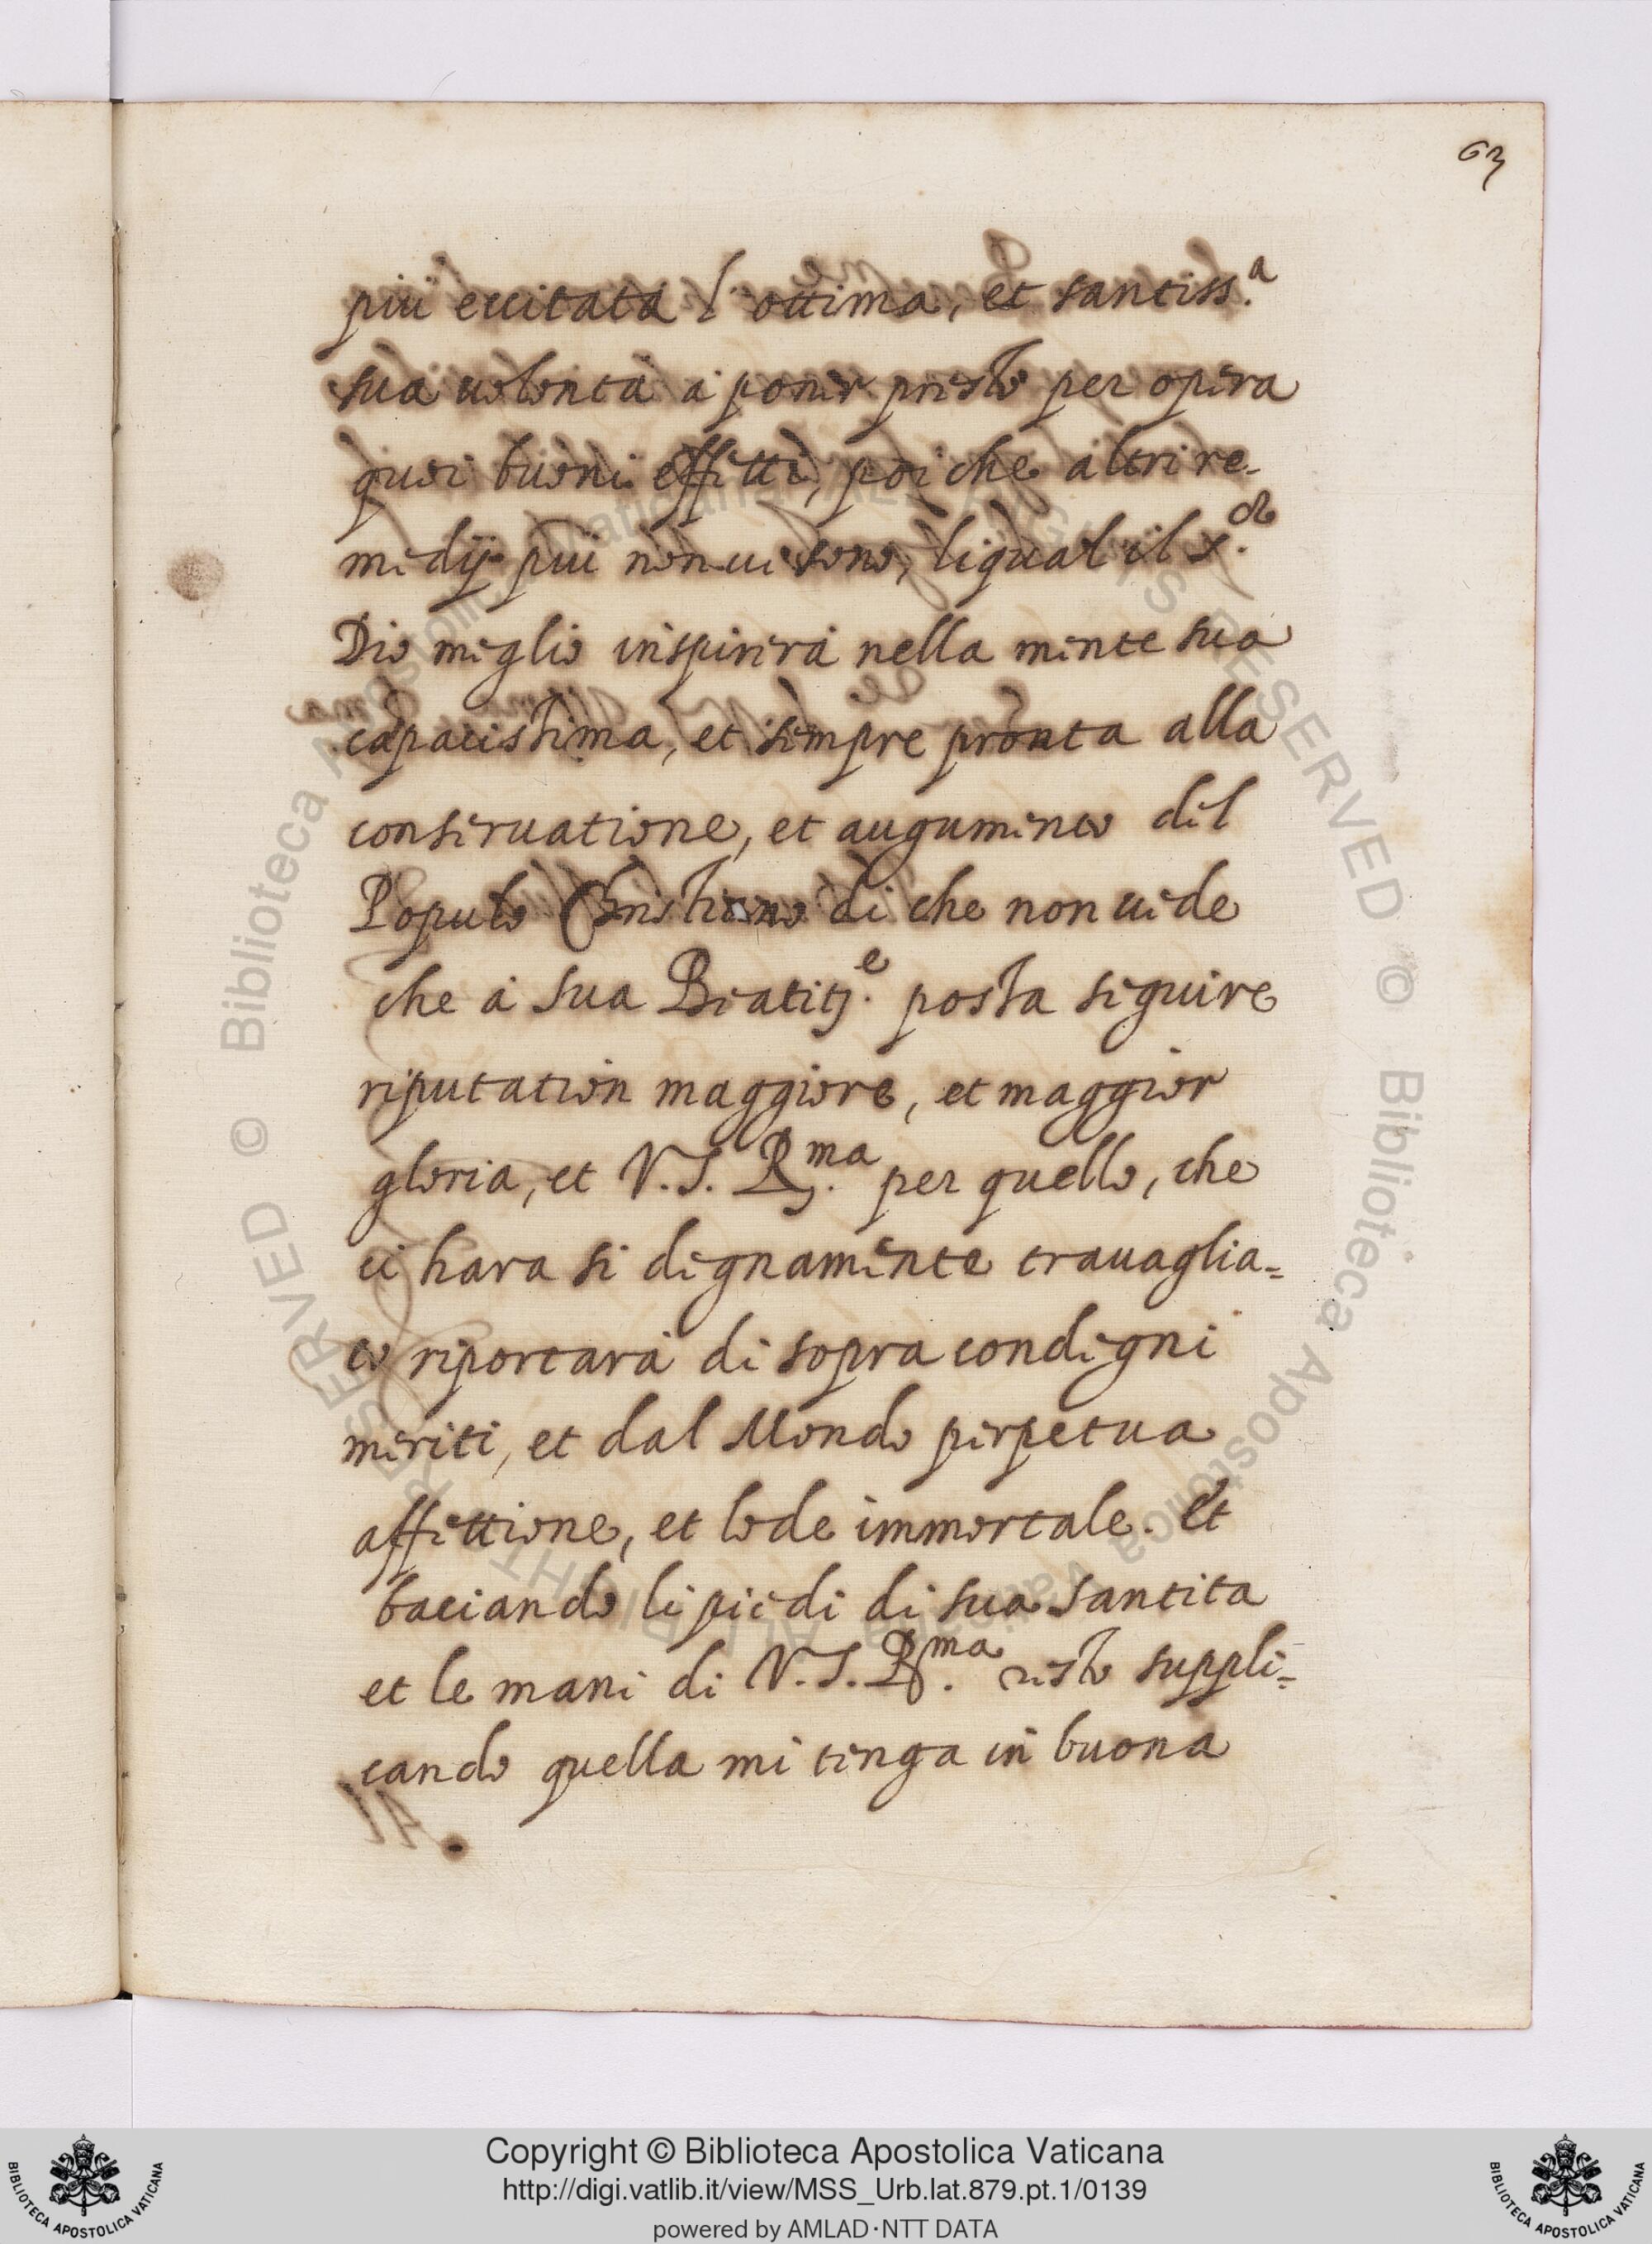 63
più eccitata l'ottima, et santiss.a
sua uolontà à poner presto per opera
quei buoni effetti, poi che altri re-
medij più non ui sono, li quali il s.or
Dio meglio inspirerà nella mente sua
capacissima, et sempre pronta alla
conseruatione, et augumento del
Populo Christiano di che non uede
che à sua Beatit.e possa seguire
riputation maggiore, et maggior
gloria, et V.S. R.ma per quello, che
ci hara si degnamente trauaglia=
to riportarà di sopra condegni
meriti, et dal Mondo perpetua
affettione, et lode immortale. Et
baciando li piedi di sua Santita
et le mani di V.S. R.ma resto suppli=
cando quella mi tenga in buona
Copyright © Biblioteca Apostolica Vaticana
http://digi.vatlib.it/view/MSS_Urb.lat.879.pt.1/0139
powered by AMLAD·NTT DATA
BIBLIOTECA APOSTOLICA VATICANA
BIBLIOTECA APOSTOLICA VATICANA